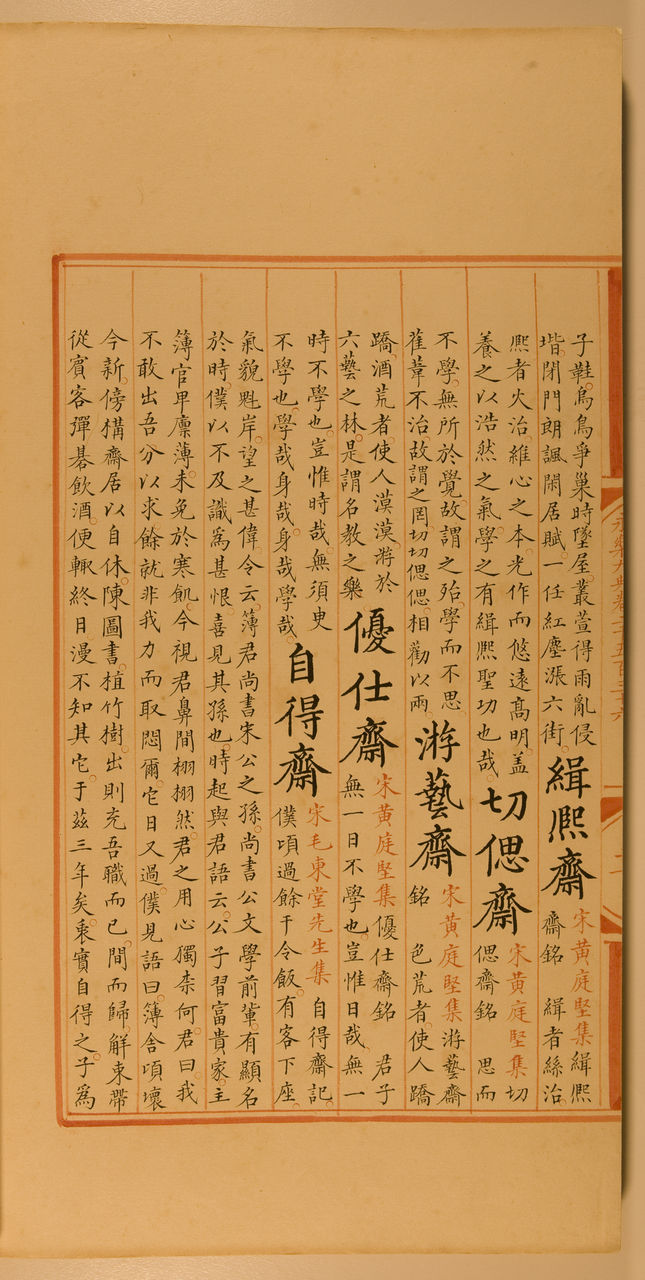 永樂大典卷二千五百三十六
子鞋。烏鳥爭巢時墜屋。叢萱得雨亂侵
堦。閉門朗諷閑居賦。一任紅塵漲六街。
緝熈齋
宋黃庭堅集緝熈
齋銘 緝者絲治。
熈者火治。維心之本。光作而悠遠高明。蓋
養之以浩然之氣。學之有緝熈聖功也哉。
切偲齋
宋黃庭堅集切
偲齋銘 思而
不學。無所於覺。故謂之殆。學而不思。
萑葦不治。故謂之罔。切切偲偲。相勸以兩。
游藝齋
宋黃庭堅集游藝齋
銘 色荒者使人蹻
蹻。酒荒者使人漠漠。游於
六藝之林。是謂名教之樂
優仕齋
宋黃庭堅集優仕齋銘 君子
無一日不學也。豈惟日哉。無一
時不學也。豈惟時哉。無須臾
不學也。學哉身哉。身哉學哉。
自得齋
宋毛東堂先生集自得齋記。
僕頃過餘干令飯。有客下座。
氣貌魁岸。望之甚偉。令云。簿君尚書宋公之孫。尚書公文學前輩。有顯名
於時。僕以不及識爲甚恨。喜見其孫也。時起與君語云。公子習富貴家。主
簿官卑廩薄。未免於寒飢。今視君鼻間栩栩然。君之用心獨柰何。君曰。我
不敢出吾分以求餘。就非我力而取悶爾。它日又過。僕見語曰。簿舍頃壞
今新。傍構齋居以自休。陳圖書。植竹樹。出則充吾職而已。間而歸。解束帶
從賓客彈碁飲酒。便輙終日漫不知其它。于茲三年矣。秉實自得之。子爲